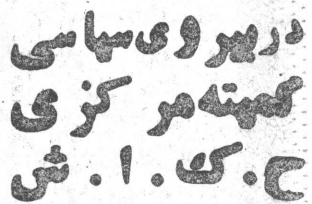 در پیروی سیاسی
کمیته مرکزی
ح . ک . ا . ش